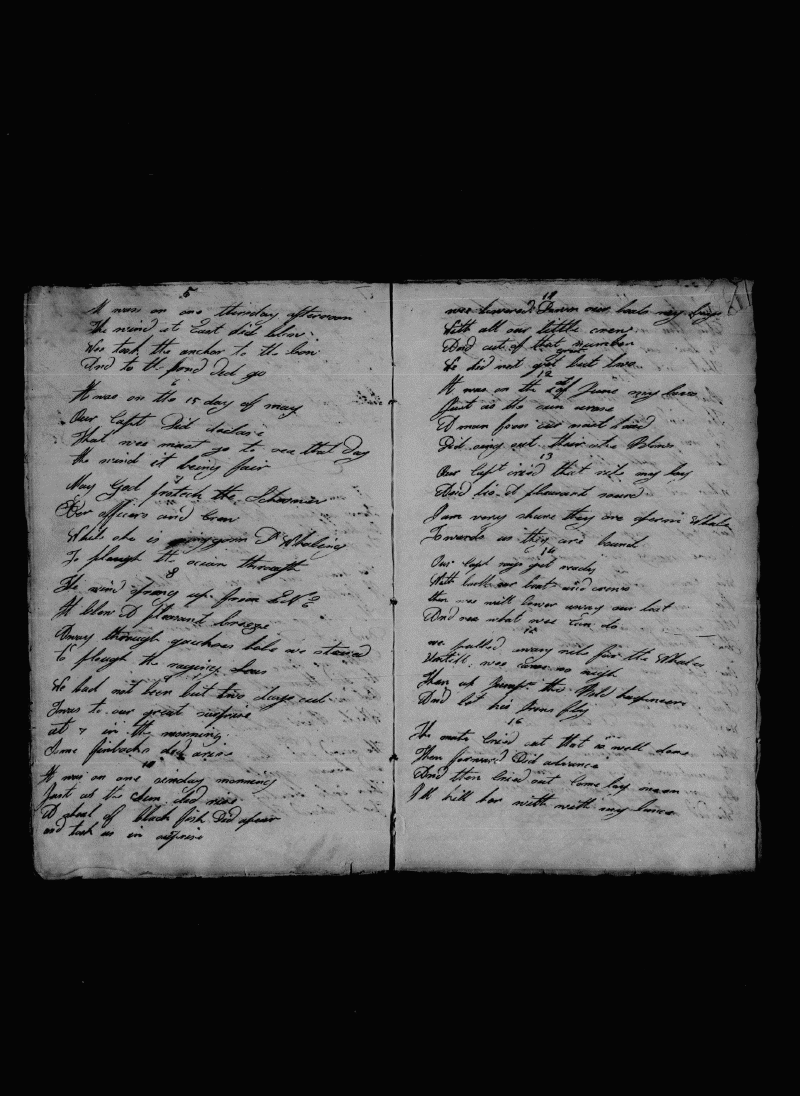 5
It was on one thirsday afternoon
The wind it East did blow
Wee took the anchor to the bow
And to the pond did go
6
It was on the 15 day of may
Our Capt Did declare
That wee must go to sea that day
the wind it being fair
7
May God protect the Schooner
Her officers and Crew
While she is A Whaling
To plough the ocean through
8
The wind sprang up from E N E
It blew A pleasant breeze
Away through we steared
To plough the rageing Seas
9
We had not been but two days out
Twas to our great surprise
at 7 in the morning
Some finbacks did arise
10
It was on one sunday morning
Just as the Sun did rise
A shoal of black fish Did apear
and took us in surprise
11
wee lowered Down our boats my boys
With all our little crew
And out of that number
We did not get but two
12
It was on the of June my boys
Just as the sun arose
A man from our mast head
Did sing out thair she Blows
13
Our Capt cried that my boy
Said he A pleasant sound
I am very shure they are sperm Whales
Towards us they are bound
14
Our Capt says get ready
With both our boat and crews
then wee will lower away our boat
And see what wee can do
15
we pulled away for the Whales
Untill wee came so nigh
Then up jumpt the Bold harpineer
And let his Irons fly
16
The mate Cried out that is well done
Then forward Did advance
And then Cried out Come lay me on
I'll kill her with with my lance